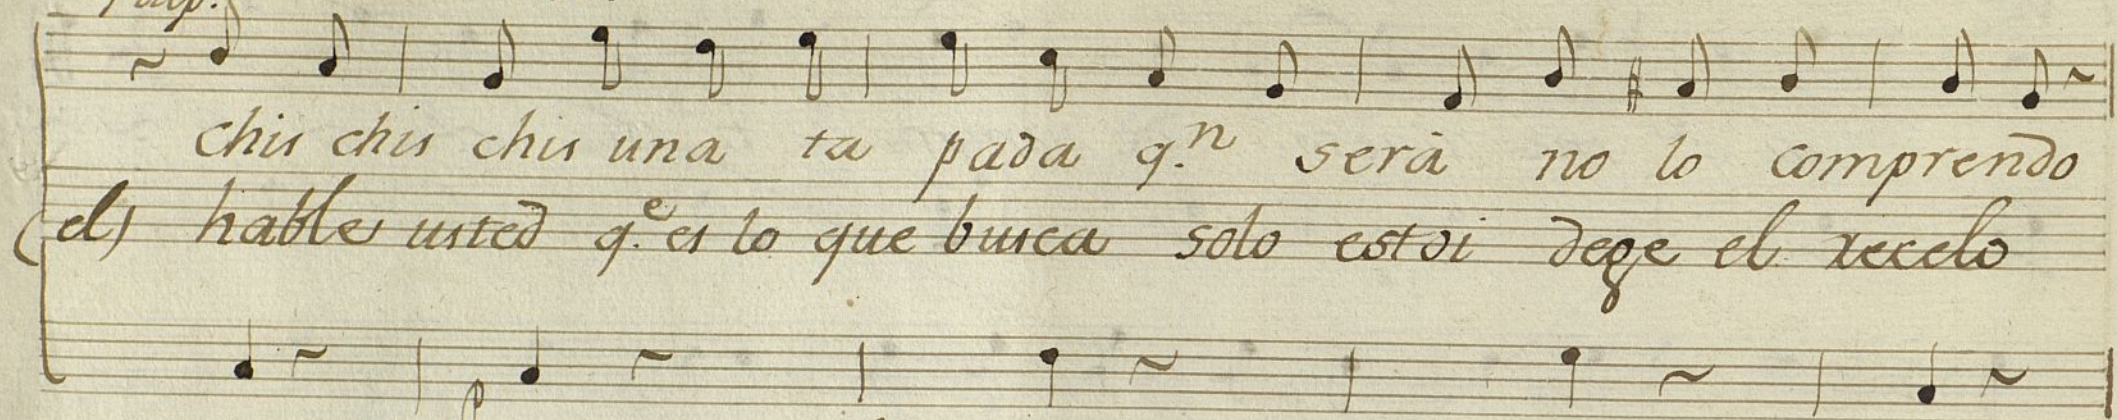 chis chis chis una ta pada q.n serà no lo comprendo
(el) hable usted q.e es lo que busca solo estoi dege el recelo
p